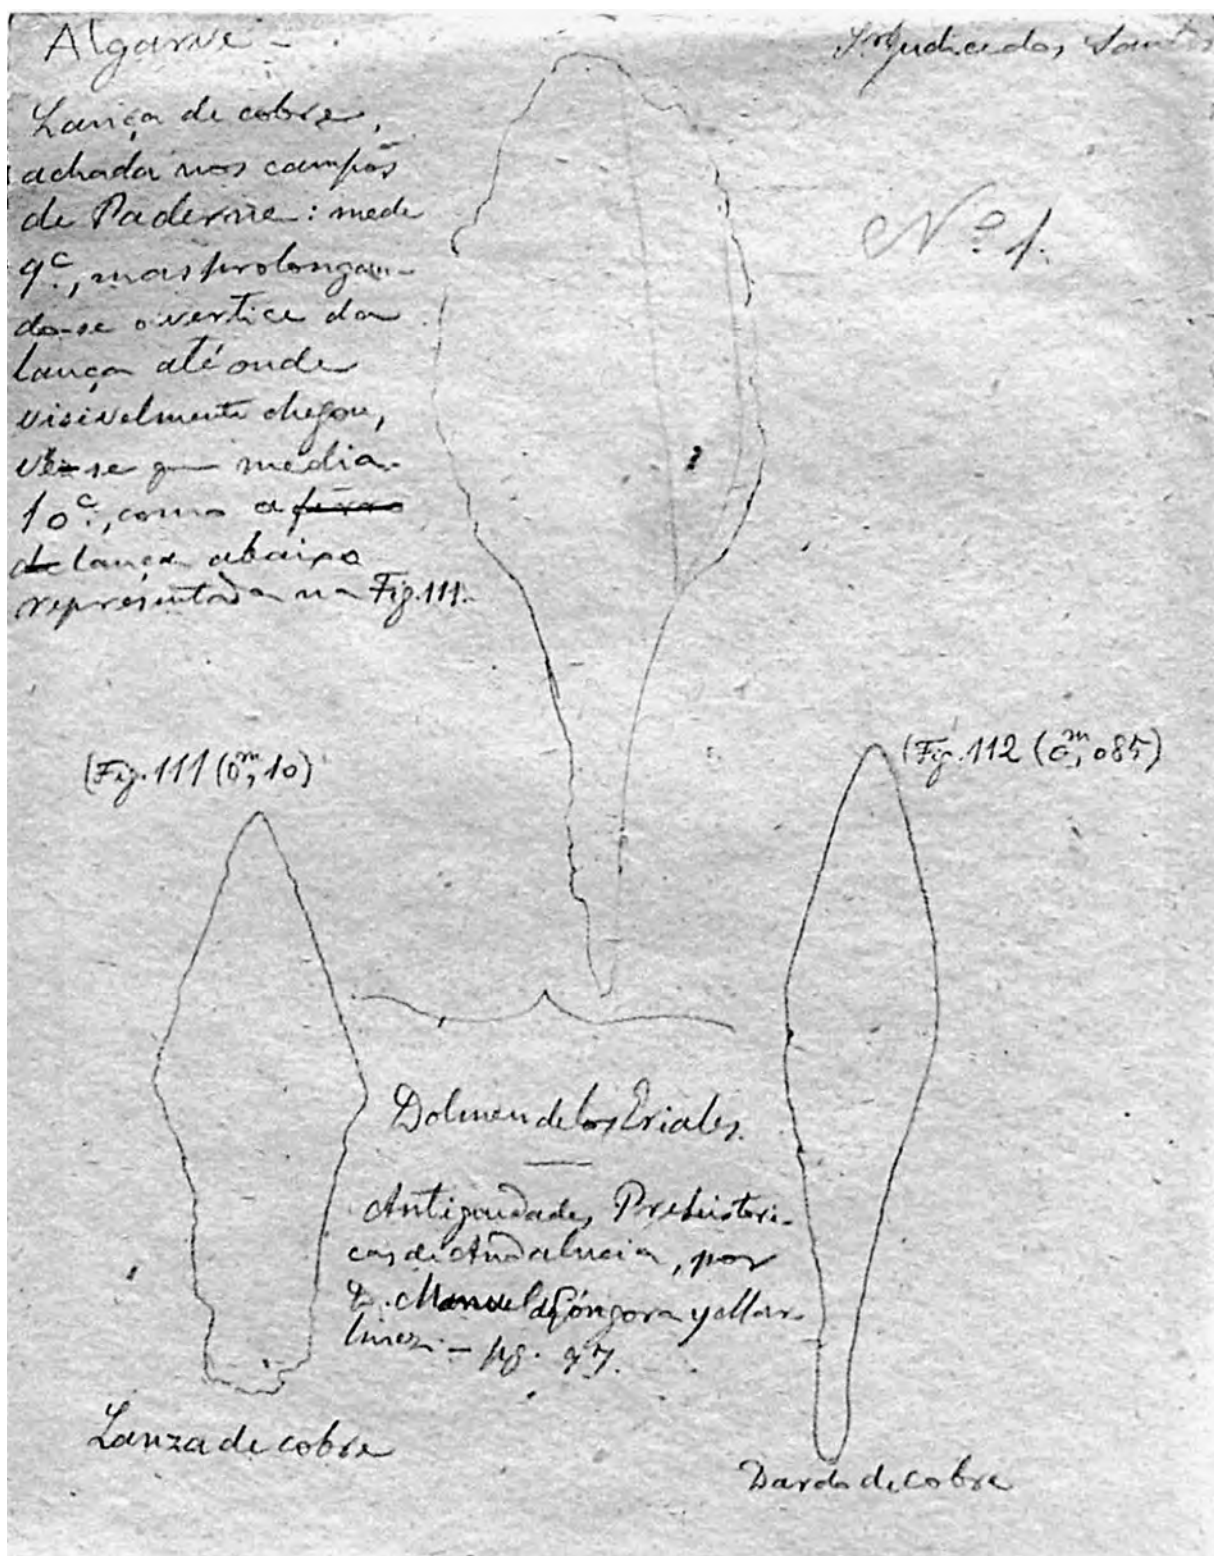 Algarve -
Judice dos Santos
Lança de cobre,
achada nos campos
de Paderne: mede
9c., mas prolongan-
do-se o vertice da
lança até onde
visivelmente chegou,
vê-se que media
10c., como a ferro
de lança abaixo
representada na Fig. 111.
Nº 1.
(Fig. 111 (0m,10)
(Fig. 112 (0m,085)
Dolmen de los Eriales.
Antiguedades Prehistori-
cas de Andalucia, por
D. Manuel de Góngora y Mar-
tinez. - pg. 97.
Lanza de cobre
Dardo de cobre